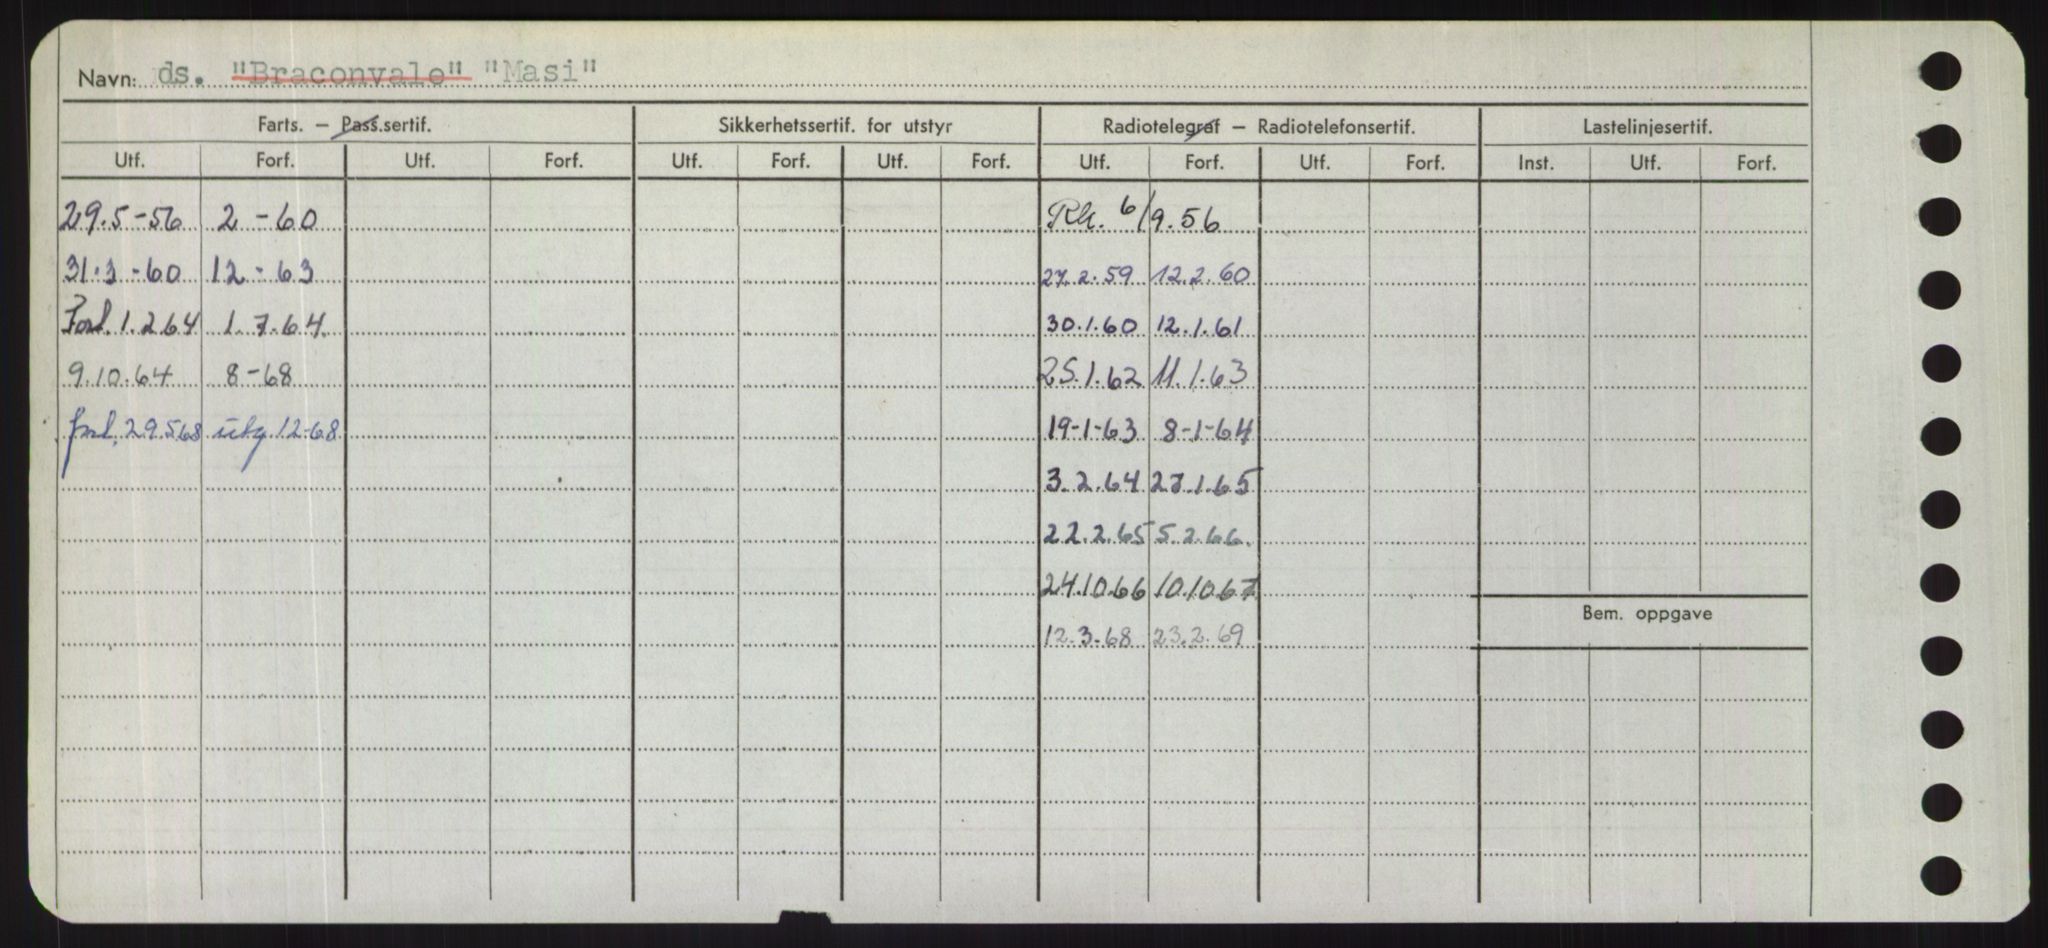 Navn: ds. "Braconvale" "Masi"
Farts. – Pass.sertif. Sikkerhetssertif. for utstyr Radiotelegraf – Radiotelefonsertif. Lastelinjesertif.
Utf. Forf. Utf. Forf. Utf. Forf. Utf. Forf. Utf. Forf. Utf. Forf. Inst. Utf. Forf.
29.5-56 2-60 6/9.56
31.3-60 12-63 27.2.59 12.2.60
Forl. 1.2.64 1.7.64. 30.1.60 12.1.61
9.10.64 8-68 25.1.62 11.1.63
forl. 29.5.68 utg. 12-68 19-1-63 8-1-64
3.2.64 27.1.65
22.2.65 5.2.66.
24.10.66 10.10.67
Bem. oppgave
12.3.68 23.2.69